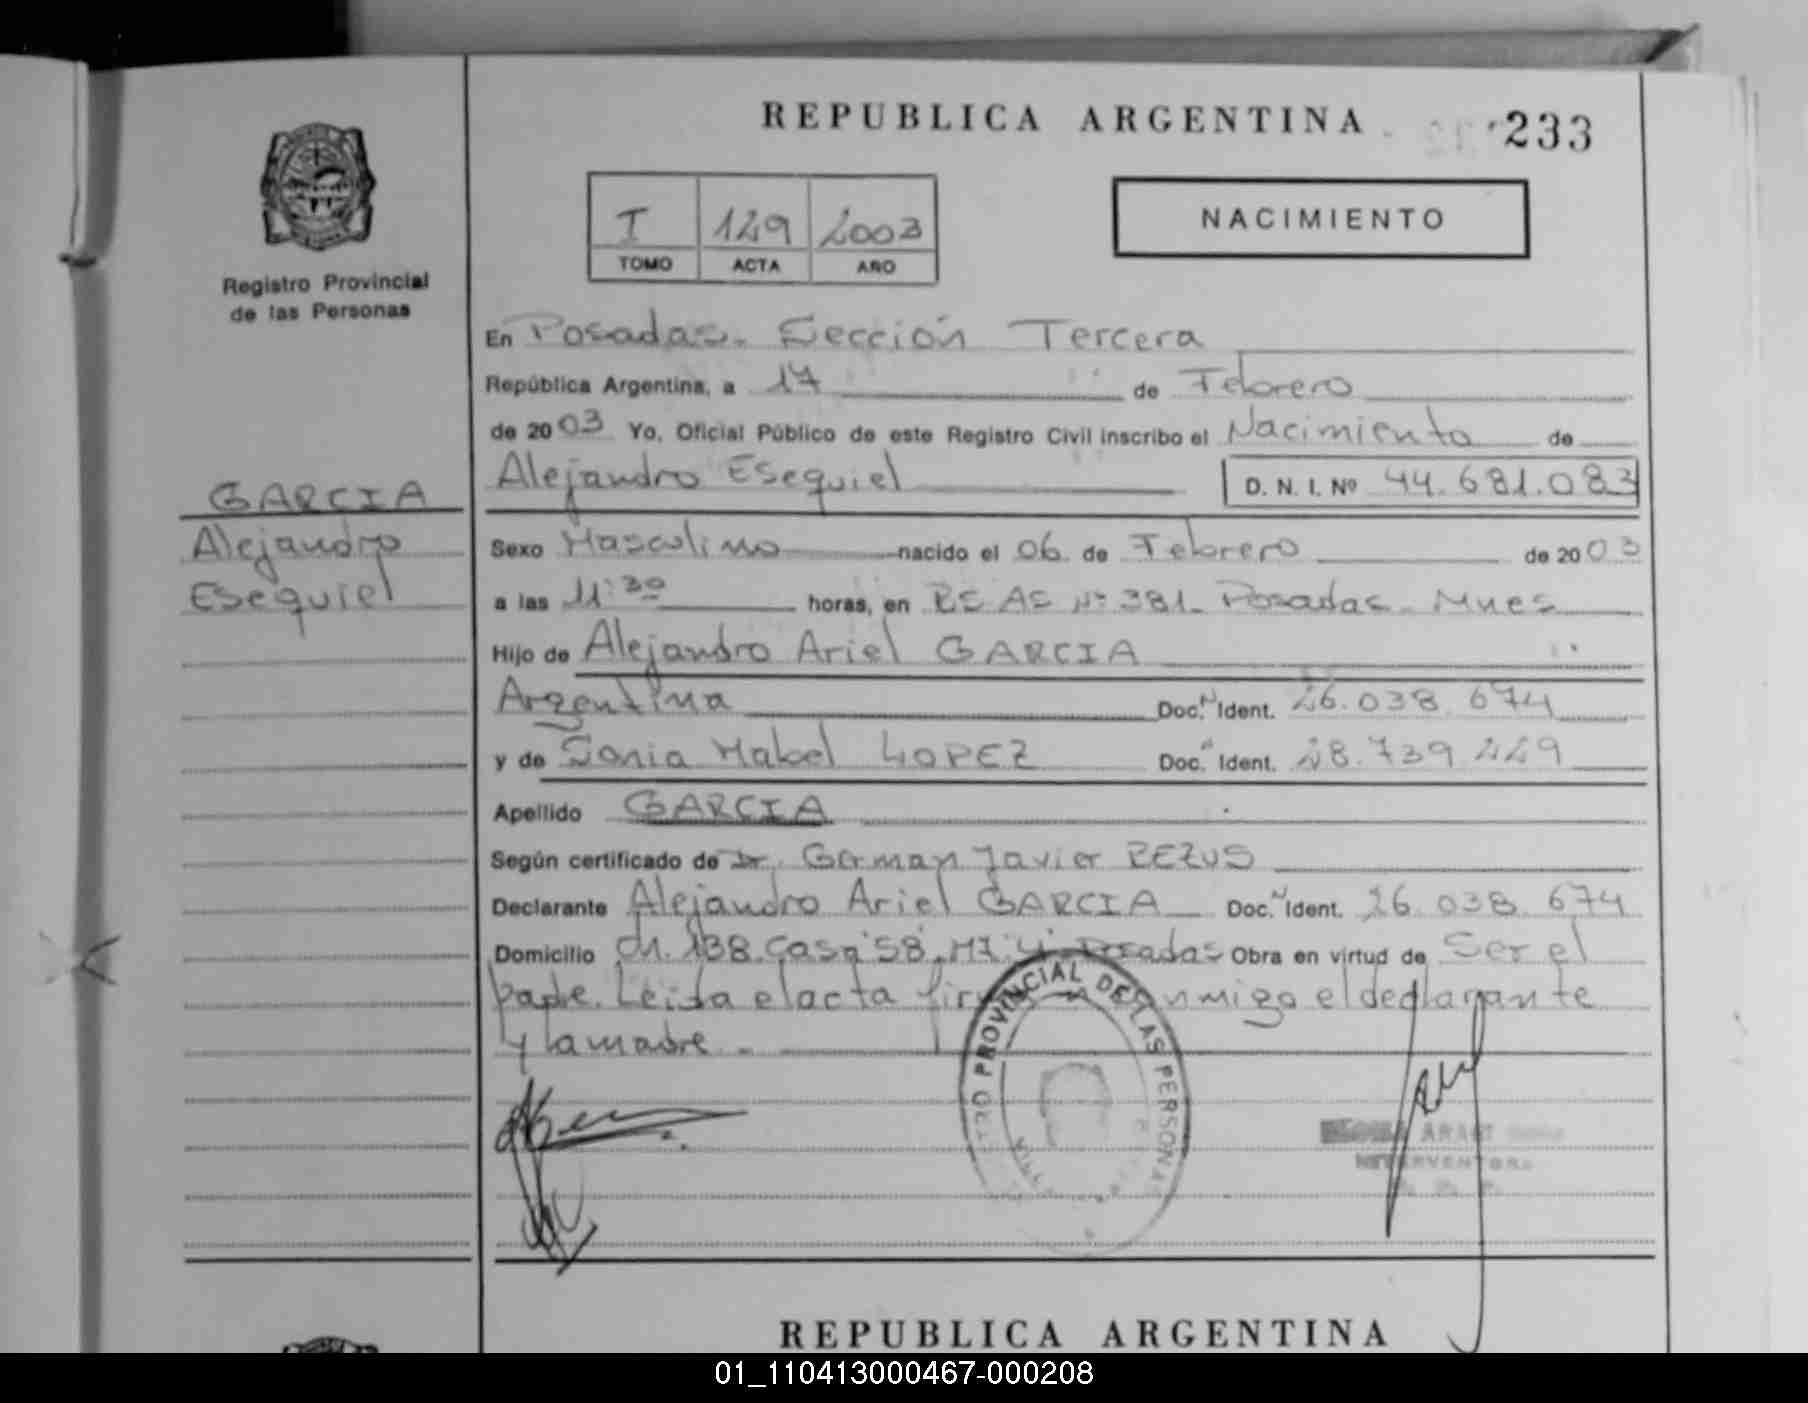 REPUBLICA ARGENTINA
233
I 129 2003
TOMO ACTA AÑO
NACIMIENTO
Registro Provincial
de las Personas
En Posadas. Sección Tercera
República Argentina, a 17 de Febrero
de 2003 Yo, Oficial Público de este Registro Civil inscribo el Nacimiento de
Alejandro Esequiel D. N. I. Nº 44.681.083
GARCIA
Alejandro
Esequiel
Sexo Masculino nacido el 06 de Febrero de 2003
a las 11:30 horas, en BS AS Nº 381. Posadas - Mnes
Hijo de Alejandro Ariel GARCIA
Argentina Doc. Ident. 26.038.674
y de Sonia Mabel LOPEZ Doc. Ident. 28.739.229
Apellido GARCIA
Según certificado de Dr. German Javier BEZUS
Declarante Alejandro Ariel GARCIA Doc. Ident. 26.038.674
Domicilio Ch. 138. Casa 58. Mz. 4 Posadas Obra en virtud de Ser el
padre. Leida el acta conmigo el declarante
y la madre.-
PROVINCIAL DE LAS PERSONAS
REPUBLICA ARGENTINA
01_110413000467-000208